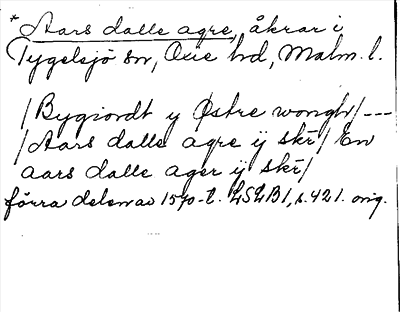 * Aars dalle agre, åkrar i
Tygelsjö sn, Oxie hd, Malm. l.
/Bygiordt y Østre wongh/---
/Aars dalle agre ÿ skr̄/ En
aars dalle ager ÿ skr̄/
förra delen av 1570-t. LSLB1, s. 421. orig.